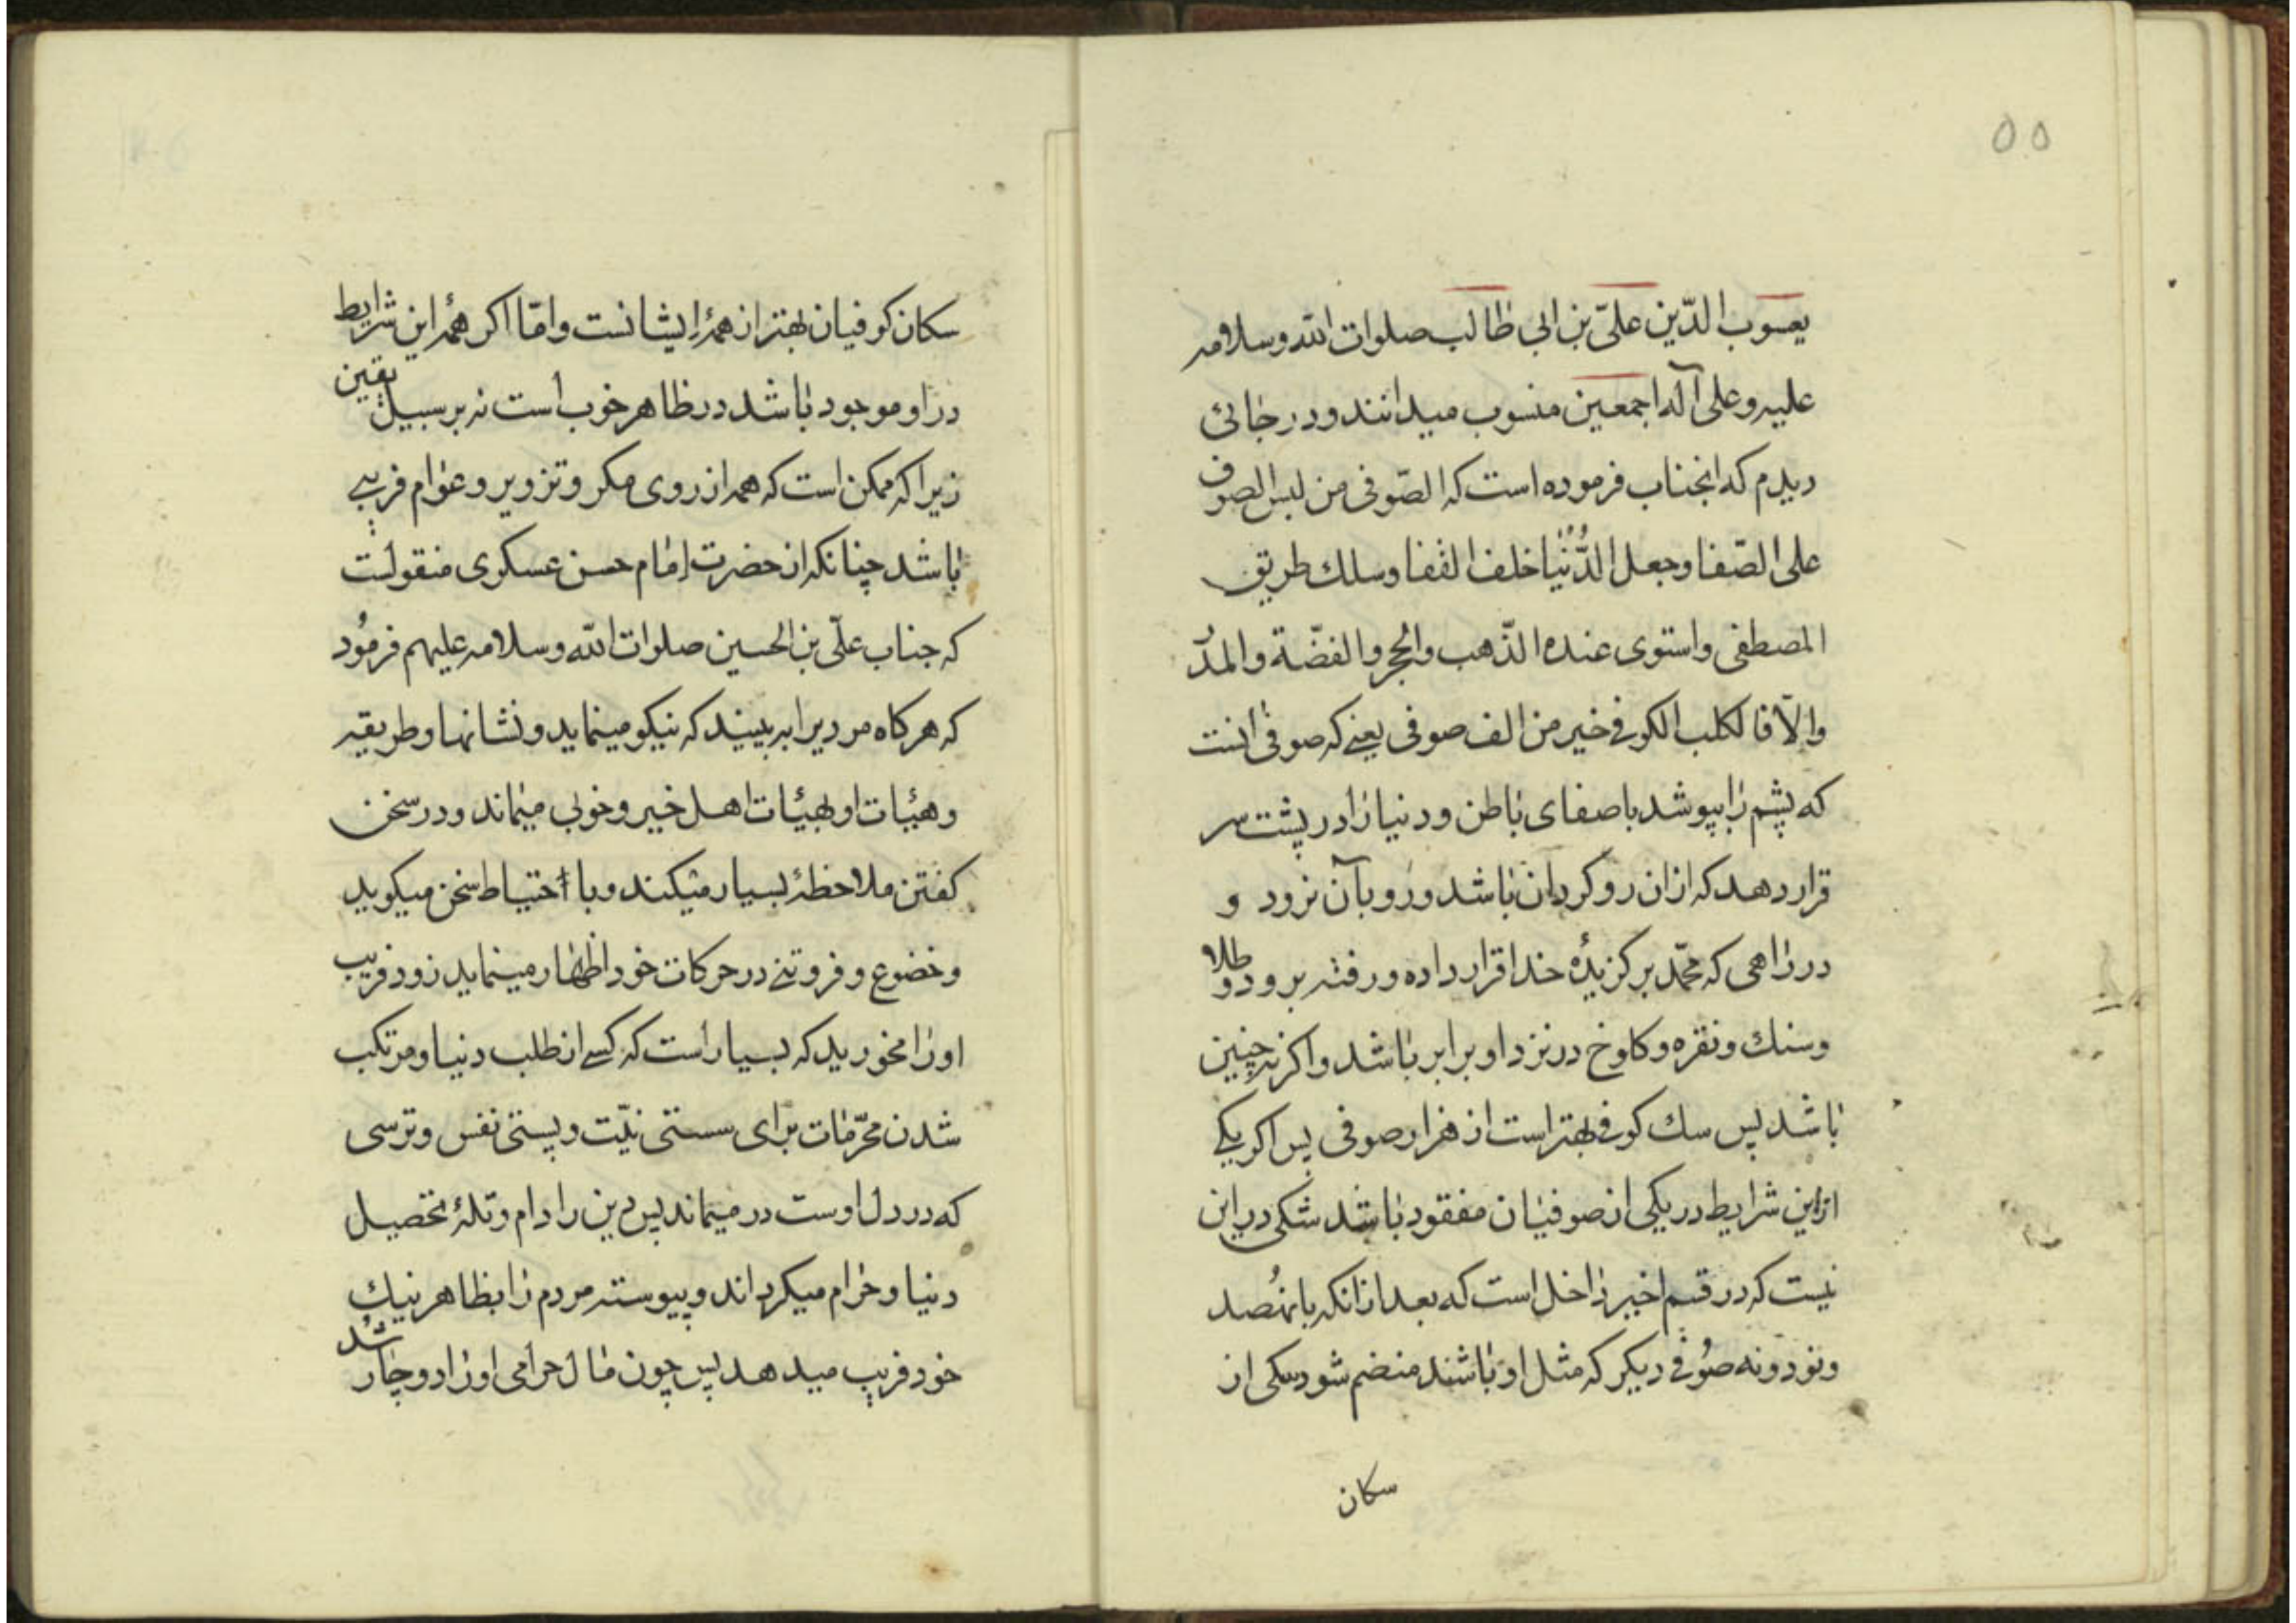 ۵۵
يعسوب الدّين علىّ بن ابى طالب صلوات اللّه وسلامه
عليه وعلى آله اجمعين منسوب ميدانند ودر جائى
ديدم كه انجناب فرموده است كه الصّوفى من لبس الصوف
على الصّفا وجعل الدُّنْيا خلف القفا وسلك طريق
المصطفى واستوى عنده الذّهب والحجر والفضّة والمدُر
والّا فالكلب الكوفى خير من الف صوفى يعنے كه صوفى انست
كه پشم را بپوشد با صفاى باطن ودنيا را در پشت سر
قرار دهد كه ازان رو كردان باشد ورو بآن نرود و
در راهى كه محمّد بركزيدهٔ خدا قرار داده ورفته برود وطلا
وسنك ونقره وكلوخ در نزد او برابر باشد واكر نه چنين
باشد پس سك كوفى بهتر است از هزار صوفى پس اكر يكے
ازاين شرايط در يكى از صوفيان مفقود باشد شكى در اين
نيست كه در قسم اخير داخل است كه بعد ازانكه با نهُصد
ونود ونه صوُفى ديكر كه مثل او باشند منضم شود يكى از
سكان
سكان كوفيان بهتر از همهٔ ايشانست وامّا اكر همهٔ اين شرايط
در او موجود باشد در ظاهر خوب است نه بر سبيل يقين
زيرا كه ممكن است كه همه از روى مكر وتزوير وعوام فريبے
باشد چنانكه از حضرت امام حسن عسكرى منقولست
كه جناب علّى بن الحسين صلوات اللّه وسلامه عليهم فرموُد
كه هركاه مرديرا به بينيد كه نيكو مينمايد ونشانها وطريقه
وهئات او بهئات اهل خير وخوبى ميماند ودر سخن
كفتن ملاحظهٔ بسيار ميكند وبا احتياط سخن ميكويد
وخضوع وفروتنے در حركات خود اظهار مينمايد زود فريب
اورا مخوريد كه بسيار است كه كسے از طلب دنيا ومرتكب
شدن محرّمات براى سستى نيّت وپستى نفس وترسى
كه در دل اوست در ميماند پس دين را دام وتلهٔ تحصيل
دنيا وحرام ميكرداند وپيوسته مردم را بظاهر نيك
خود فريب ميدهد پس چون مال حرامى اورا دوچار شد